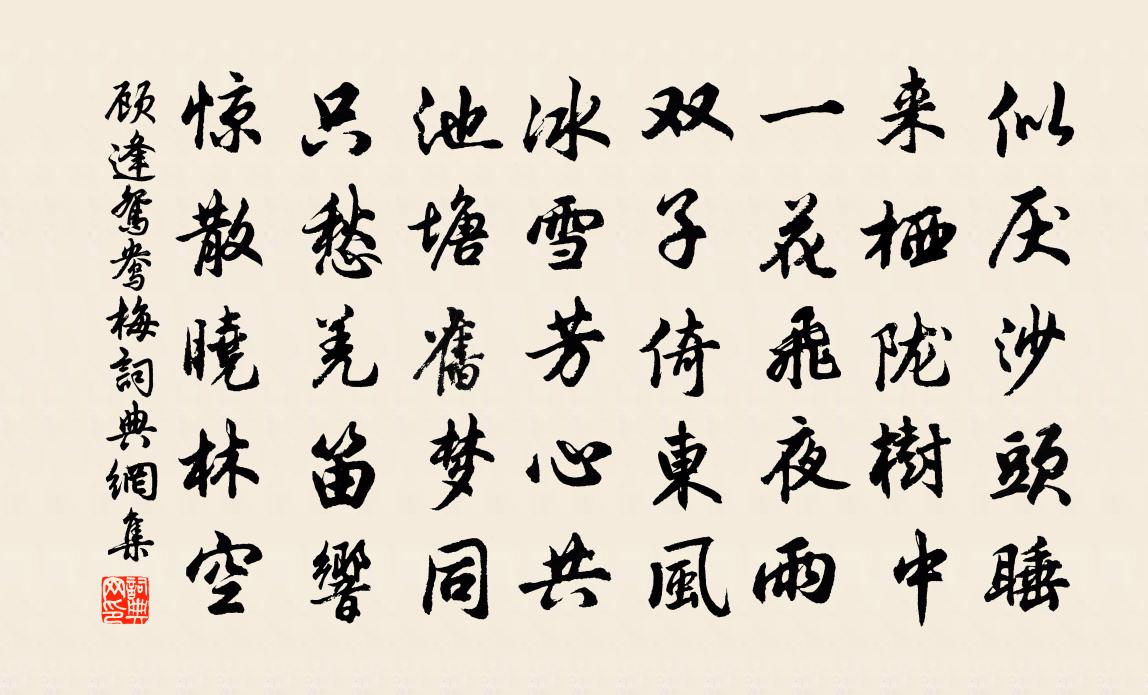 似厌沙頭睡
来栖陇樹中
一花飛夜雨
双子倚東風
冰雪芳心共
池塘舊梦同
只愁羌笛響
惊散曉林空
顾逢鸳鸯梅詞典網集
詞典网印